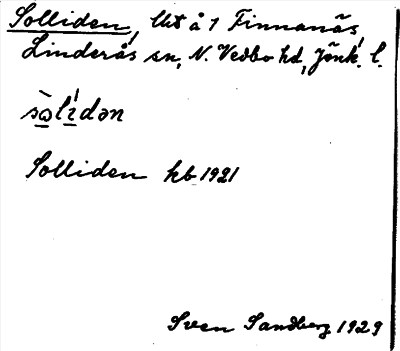 Solliden, lht å 1 Finnanäs,
Linderås sn, N. Vedbo hd, Jönk. l.
sòlídən
Solliden hb 1921
Sven Sandberg 1929